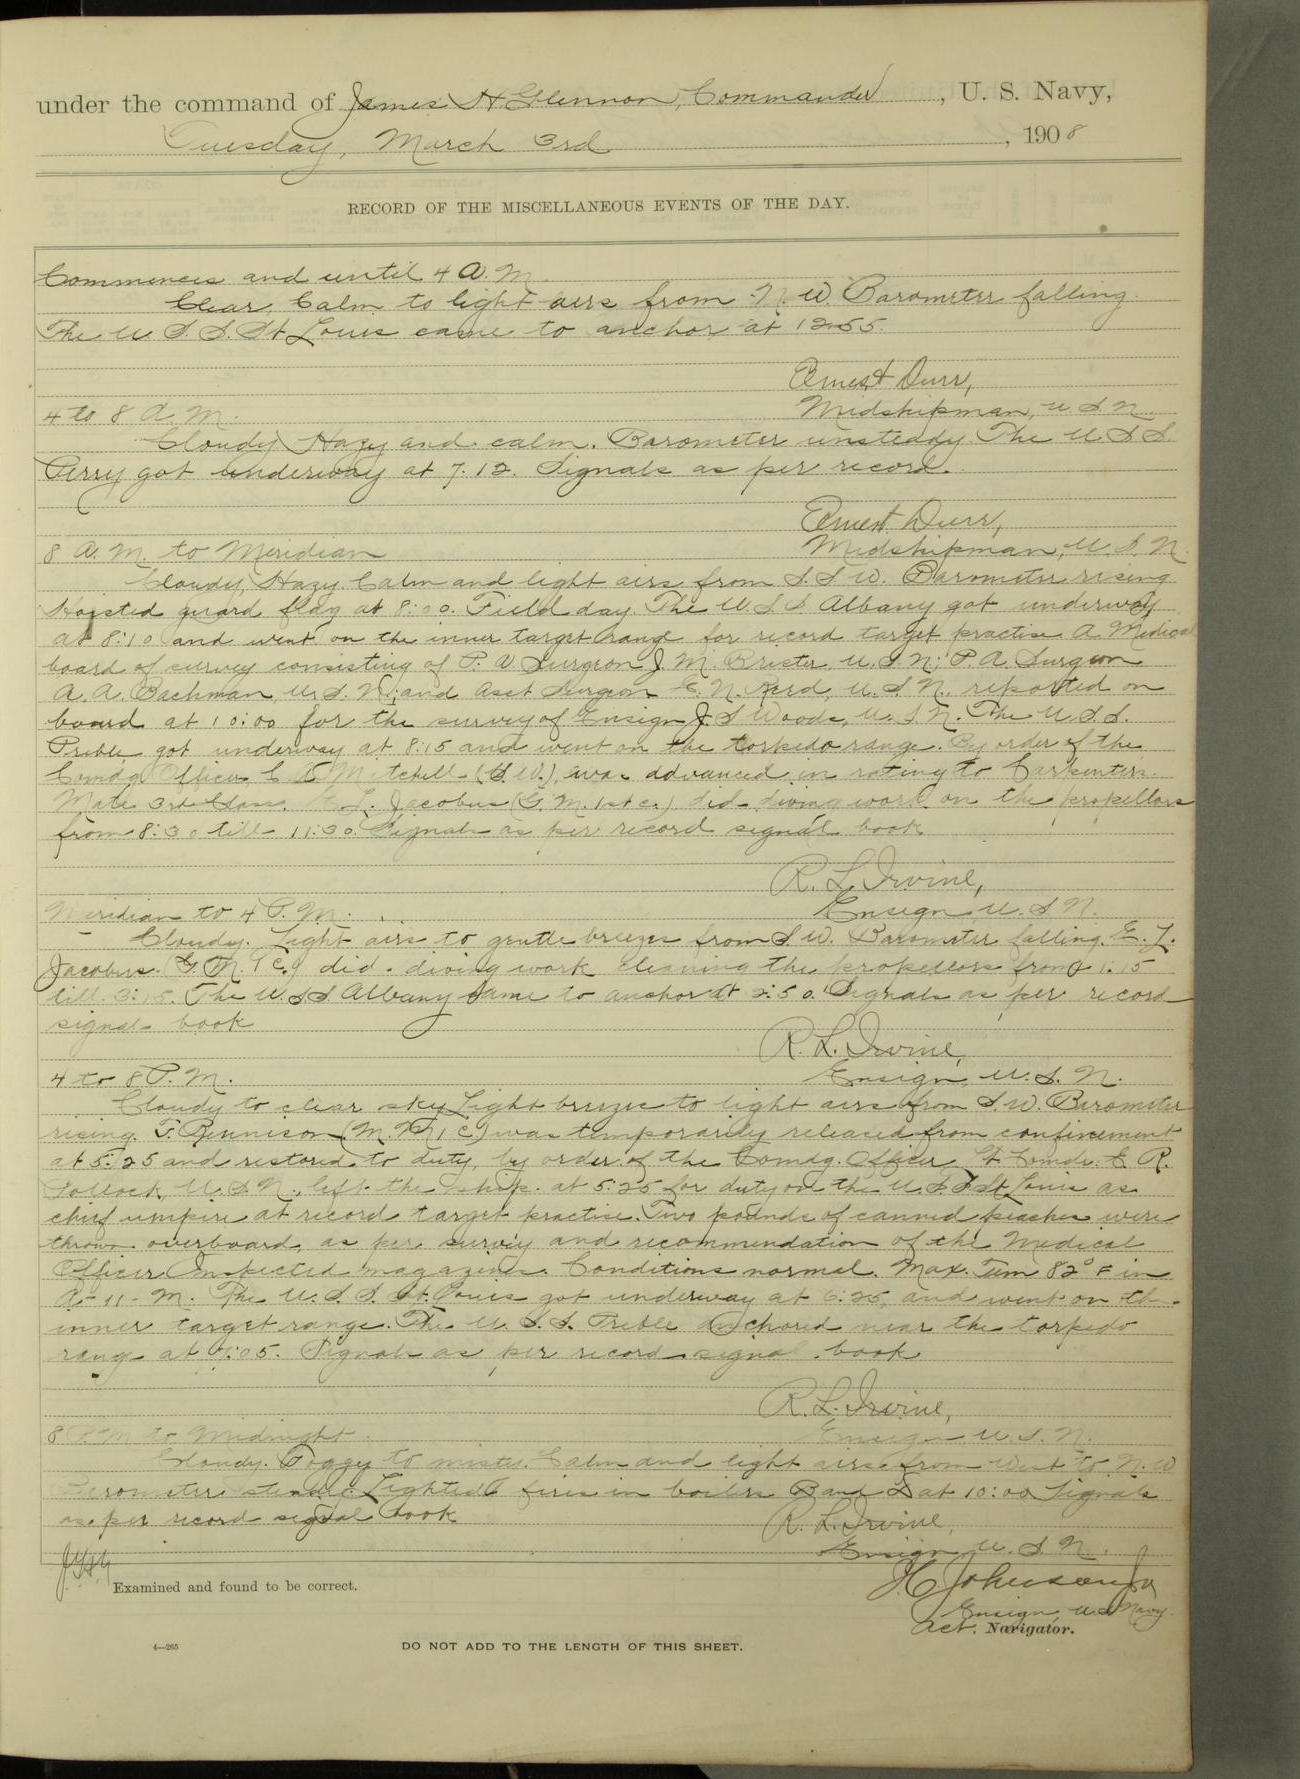 under the command of James H Glennon, Commander, U. S. Navy,
Tuesday, March 3rd, 1908
RECORD OF THE MISCELLANEOUS EVENTS OF THE DAY.
Commences and until 4 A.M.
Clear, Calm to light airs from N. W. Barometer falling.
The U. S. S. St Louis came to anchor at 12.55.
Ernest Durr,
4 to 8 A. M.
Midshipman, U. S. N.
Cloudy, Hazy and calm. Barometer unsteady. The U. S. S.
Perry got underway at 7.12. Signals as per record.
Ernest Durr,
8 A. M. to Meridian
Midshipman, U. S. N.
Cloudy, Hazy. Calm and light airs from S. S. W. Barometer rising
Hoisted guard flag at 8:00. Field day. The U. S. S. Albany got underway
at 8:10 and went on the inner target range for record target practise. A Medical
board of survey consisting of P. A. Surgeon J. M. Brister, U. S. N; P. A. Surgeon
A. A. Bachman, U. S. N; and Asst Surgeon E. N. Reed, U. S. N. reported on
board at 10:00 for the survey of Ensign J. S Woods, U. S. N. The U. S. S.
Preble, got underway at 8:15 and went on the torpedo range. By order of the
Comdg Officer, C Mitchell was advanced in rating to Carpenters
Mate 3rd Class. L. Jacobus (G. M. 1st c.) did diving work on the propellors
from 8:30 till 11:30. Signals as per record signal book
R. L. Irvine,
Meridian to 4 P. M.
Ensign, U. S. N.
Cloudy. Light airs to gentle breezes from S. W. Barometer falling. E. L.
Jacobus. (G. M. 1 c.) did diving work cleaning the propellors from 1:15
till 3:15. The U. S. S Albany came to anchor at 2:50. Signals as per record
signal book
R. L. Irvine,
4 to 8 P. M.
Ensign, U. S. N.
Cloudy to clear sky. Light breezes to light airs from S. W. Barometer
rising. T. Bennison (M. M 1 c.) was temporarily released from confinement
at 5:25 and restored to duty, by order of the Comdg. Officer. Lt Comdr. E. R.
Pollock, U. S. N., left the ship at 5:25 for duty on the U. S. S St Louis as
chief umpire at record target practise. Two pounds of canned peaches were
thrown overboard, as per survey and recommendation of the Medical
Officer. Inspected magazines. Conditions normal. Max. Tem 82° F in
A-11-M. The U. S. S. St. Louis got underway at 6:25, and went on the
inner target range. The U. S. S. Preble anchored near the torpedo
range at :05. Signals as per record signal book
R. L. Irvine,
8 P. M to Midnight
Ensign U. S. N.
Cloudy. Foggy to misty. Calm and light airs from West to N. W
Barometer steady. Lighted fires in boilers B and D at 10:00. Signals
as per record signal book
R. L. Irvine,
Ensign U. S. N.
J.H.G.
Examined and found to be correct.
Ensign U.S Navy
Act. Navigator.
4—265
DO NOT ADD TO THE LENGTH OF THIS SHEET.